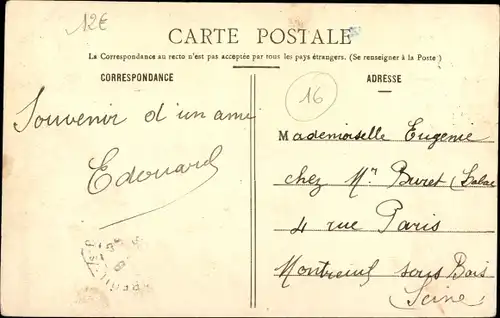 12€
CARTE POSTALE
La Correspondance au recto n'est pas acceptée par tous les pays étrangers. (Se renseigner à la Poste)
CORRESPONDANCE
ADRESSE
16
Souvenir d'un ami
Edouard
Mademoiselle Eugenie
chez Mr Buret (Tabac
4 rue Paris
Montreuil sous Bois
(Seine)